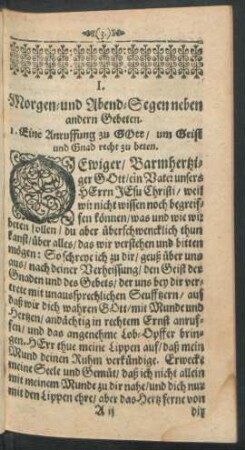 3.
I.
Morgen/und Abend/Segen neben
andern Gebeten.
1. Eine Anruffung zu GOtt/ um Geist
und Gnad recht zu beten.
O Ewiger/ Barmhertzi-
ger GOtt/ein Vater unsers
HErrn JEsu Christi/ weil
wir nicht wissen noch begreif-
fen können/was und wie wir
beten sollen/ du aber überschwencklich thun
kanst/über alles/das wir verstehen und bitten
mögen: So schreye ich zu dir/ geuß über uns
aus/ nach deiner Verheissung/ den Geist der
Gnaden und des Gebets/ der uns bey dir ver-
trete mit unaussprechlichen Seufftzern/ auf
daß wir dich wahren GOtt/mit Munde und
Hertzen/andächtig in rechtem Ernst anruf-
fen/ und das angenehme Lob-Opffer brin-
gen. HErr thue meine Lippen auf/ daß mein
Mund deinen Ruhm verkündige. Erwecke
meine Seele und Gemüt/ daß ich nicht allein
mit meinem Munde zu dir nahe/und dich nur
mit den Lippen ehre/ aber das Hertz ferne von
A ij dir